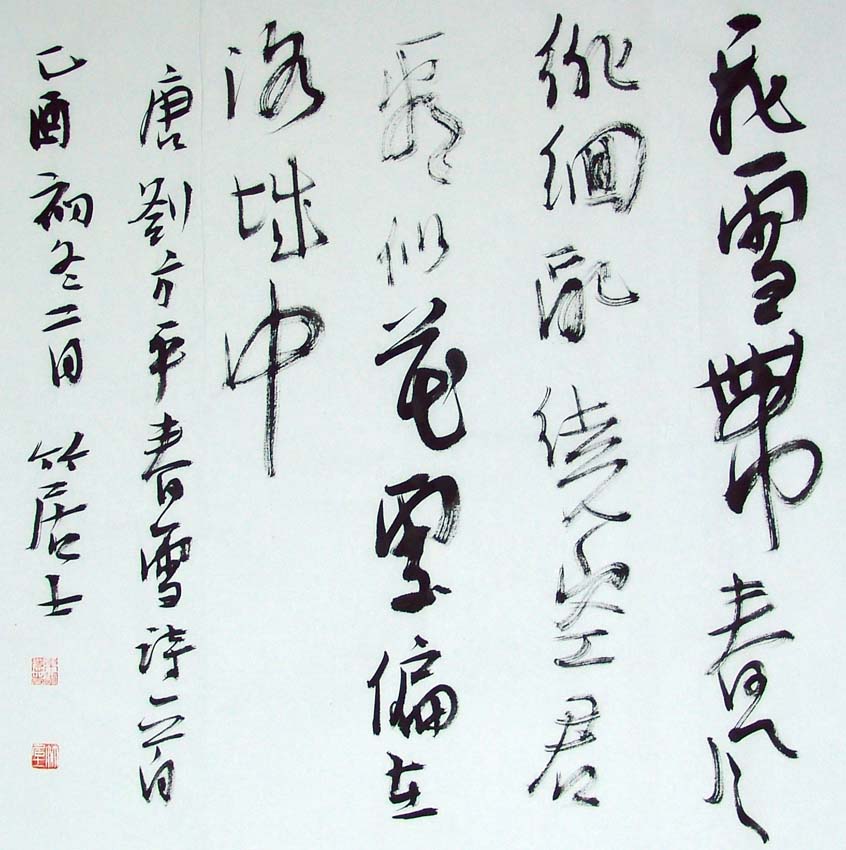 飛雪帶春風
徘徊亂繞空君
看似花處偏在
洛城中
唐劉方平春雪詩一首
乙酉初冬二日 竹居士